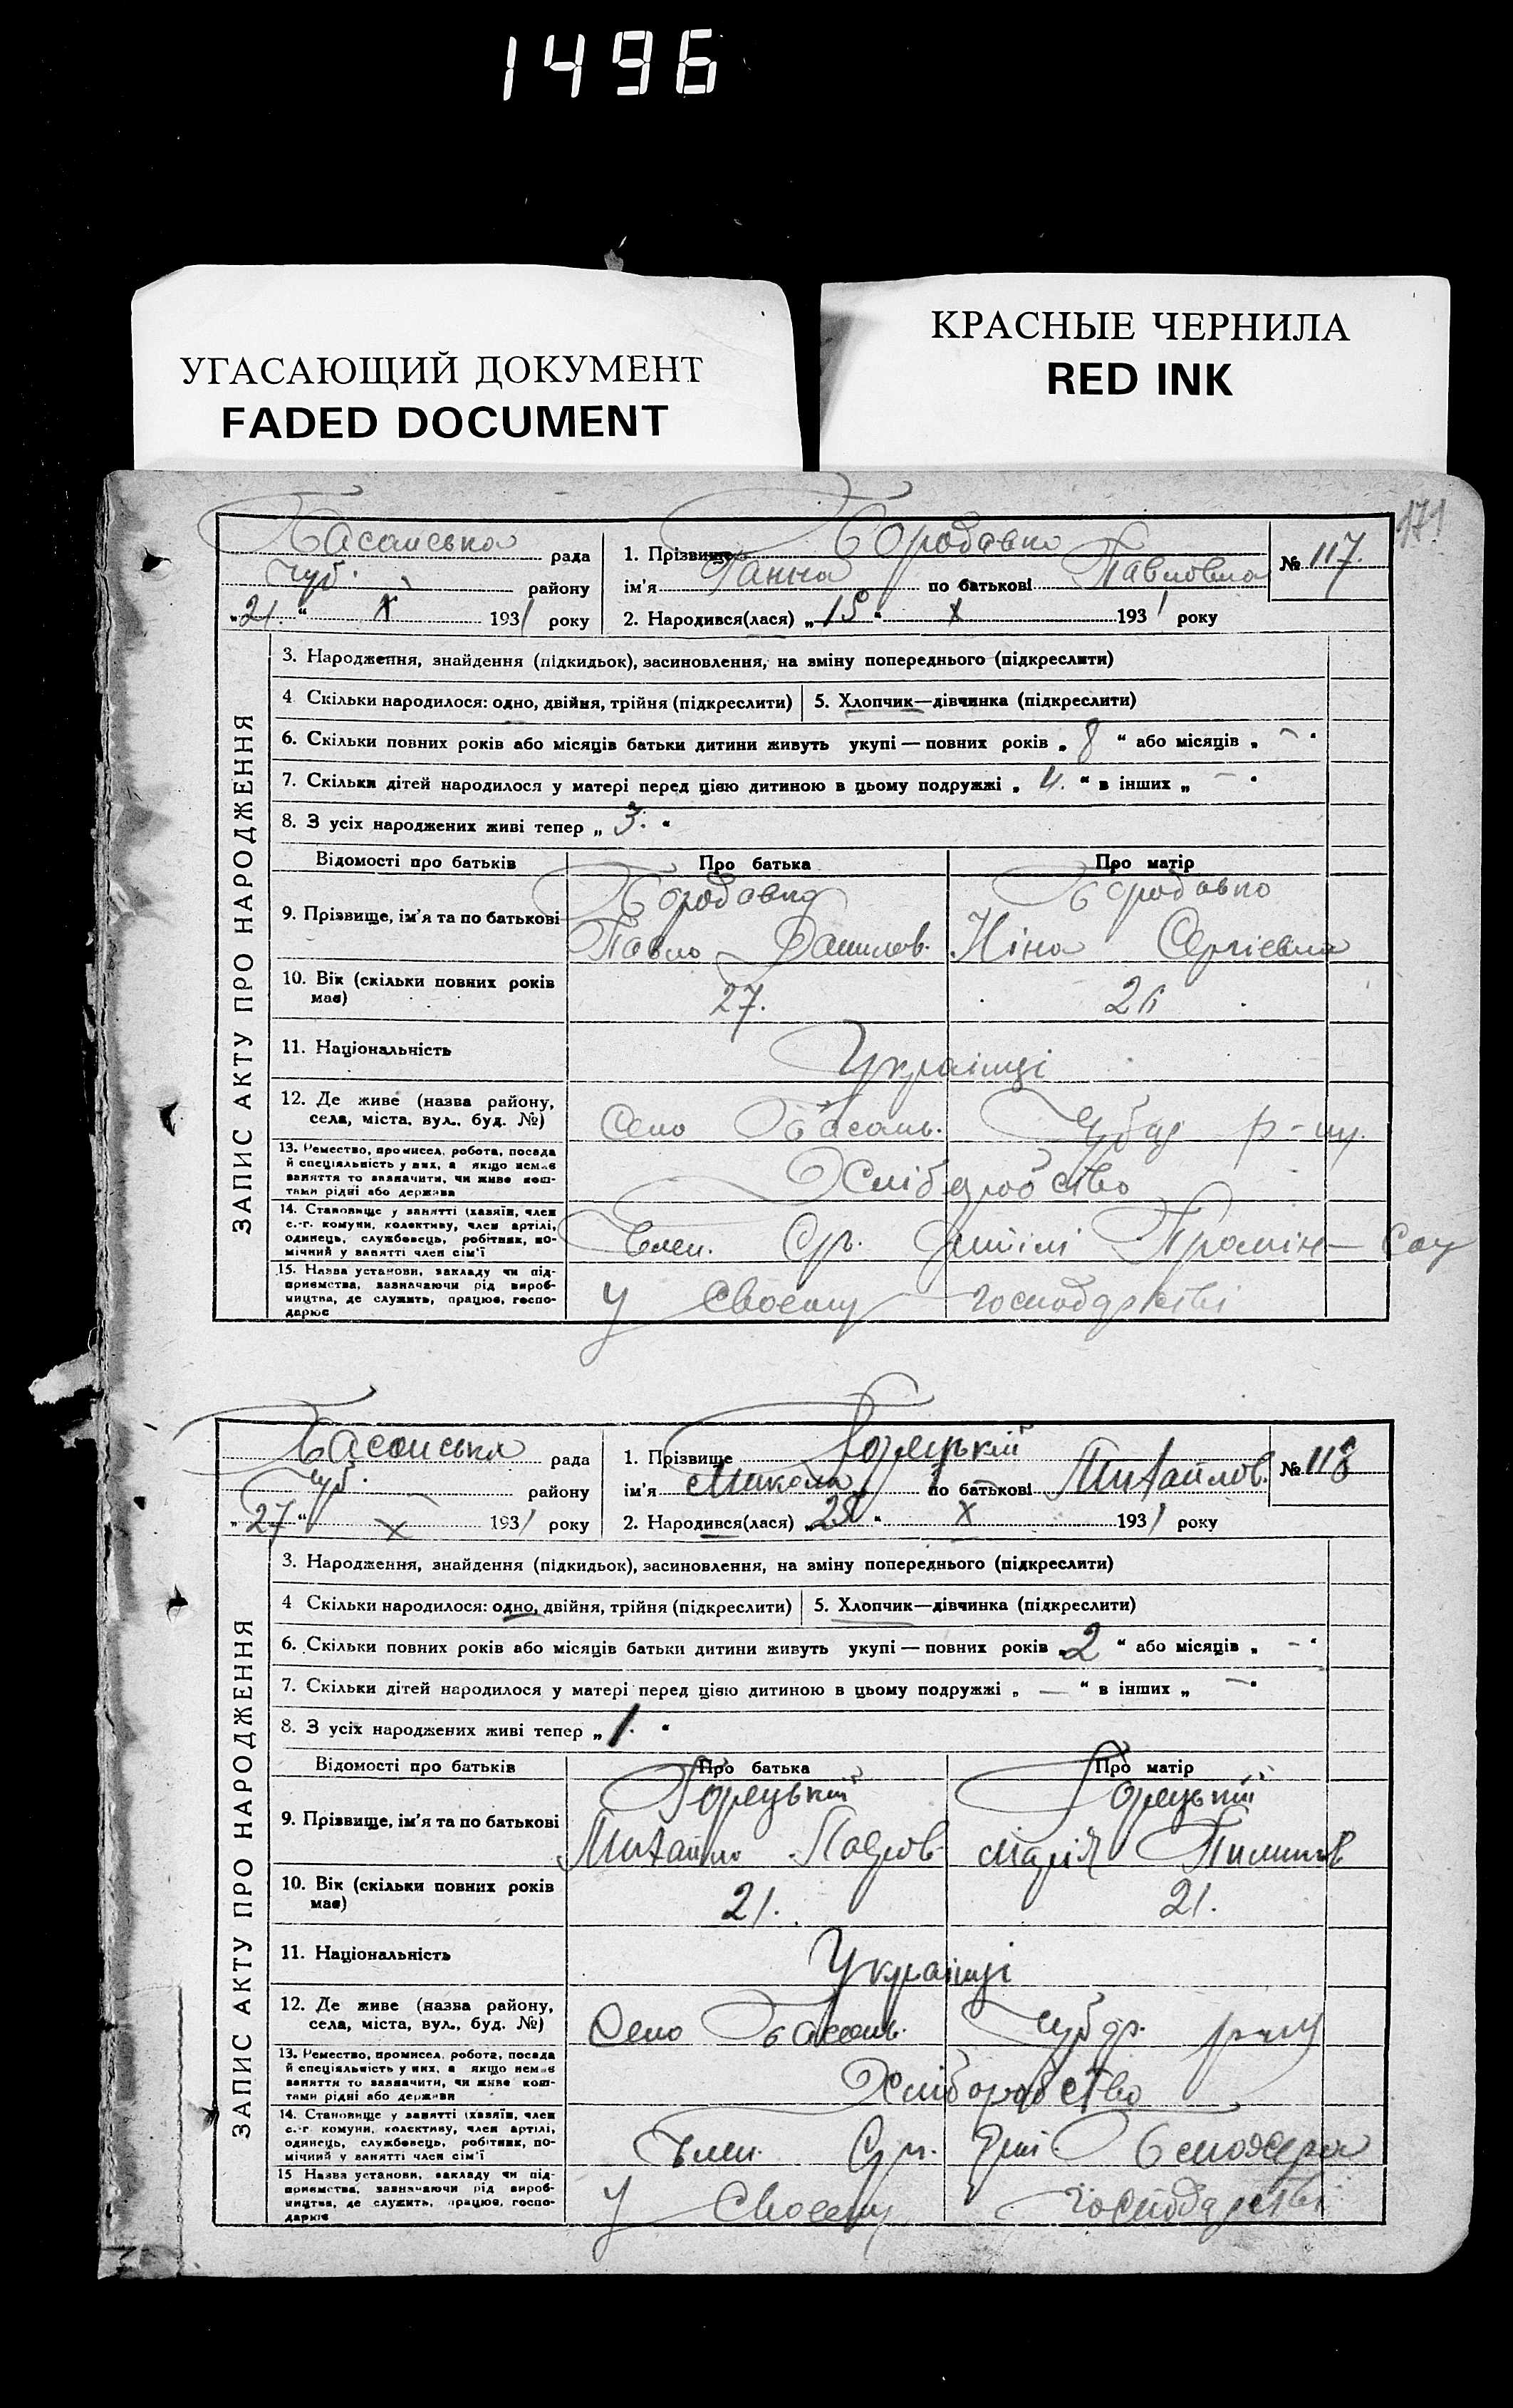 1496
УГАСАЮЩИЙ ДОКУМЕНТ
FADED DOCUMENT
КРАСНЫЕ ЧЕРНИЛА
RED INK
171
Басанська рада
Чуб. району
„21.“ X 1931 року
1. Прізвище Бородавка
ім'я Ганна по батькові Павловна
2. Народився(лася) „15“ X 1931 року
№ 117.
ЗАПИС АКТУ ПРО НАРОДЖЕННЯ
3. Народження, знайдення (підкидьок), засиновлення, на зміну попереднього (підкреслити)
4 Скільки народилося: одно, двійня, трійня (підкреслити) 5. Хлопчик—дівчинка (підкреслити)
6. Скільки повних років або місяців батьки дитини живуть укупі — повних років „8“ або місяців „—“
7. Скільки дітей народилося у матері перед цією дитиною в цьому подружжі „4.“ в інших „—“
8. З усіх народжених живі тепер „3.“
Відомості про батьків Про батька Про матір
9. Прізвище, ім'я та по батькові Бородавка Бородавко
Павло Данилов. Ніна Сергієвна
10. Вік (скільки повних років має) 27. 26
11. Національність Українці
12. Де живе (назва району, села, міста, вул., буд. №) Село Басань. Чубар р-ну.
13. Ремество, промисел, робота, посада й спеціяльність у них, а якщо немає заняття то зазначити, чи живе коштами рідні або держава Хліборобство
14. Становище у занятті (хазяїн, член с.-г. комуни, колективу, член артілі, одинець, службовець, робітник, помічний у занятті член сім'ї Член. Артілі Промінь
15. Назва установи, закладу чи підприємства, зазначаючи рід виробництва, де служить, працює, господарює У своєму господарстві
Басанська рада
Чуб. району
„27“ X 1931 року
1. Прізвище Горецький
ім'я Микола по батькові Михайлов.
2. Народився(лася) „25“ X 1931 року
№ 118
ЗАПИС АКТУ ПРО НАРОДЖЕННЯ
3. Народження, знайдення (підкидьок), засиновлення, на зміну попереднього (підкреслити)
4 Скільки народилося: одно, двійня, трійня (підкреслити) 5. Хлопчик—дівчинка (підкреслити)
6. Скільки повних років або місяців батьки дитини живуть укупі — повних років „2“ або місяців „—“
7. Скільки дітей народилося у матері перед цією дитиною в цьому подружжі „—“ в інших „—“
8. З усіх народжених живі тепер „1.“
Відомості про батьків Про батька Про матір
9. Прізвище, ім'я та по батькові Горецький Горецький
Михайло Марія
10. Вік (скільки повних років має) 21. 21.
11. Національність Українці
12. Де живе (назва району, села, міста, вул., буд. №) Село Басань. Чубар. р-ну
13. Ремество, промисел, робота, посада й спеціяльність у них, а якщо немає заняття то зазначити, чи живе коштами рідні або держави Хліборобство
14. Становище у занятті (хазяїн, член с.-г комуни, колективу, член артілі, одинець, службовець, робітник, помічний у занятті член сім'ї Член.
15 Назва установи, закладу чи підприємства, зазначаючи рід виробництва, де служить, працює, господарює У своєму господарстві